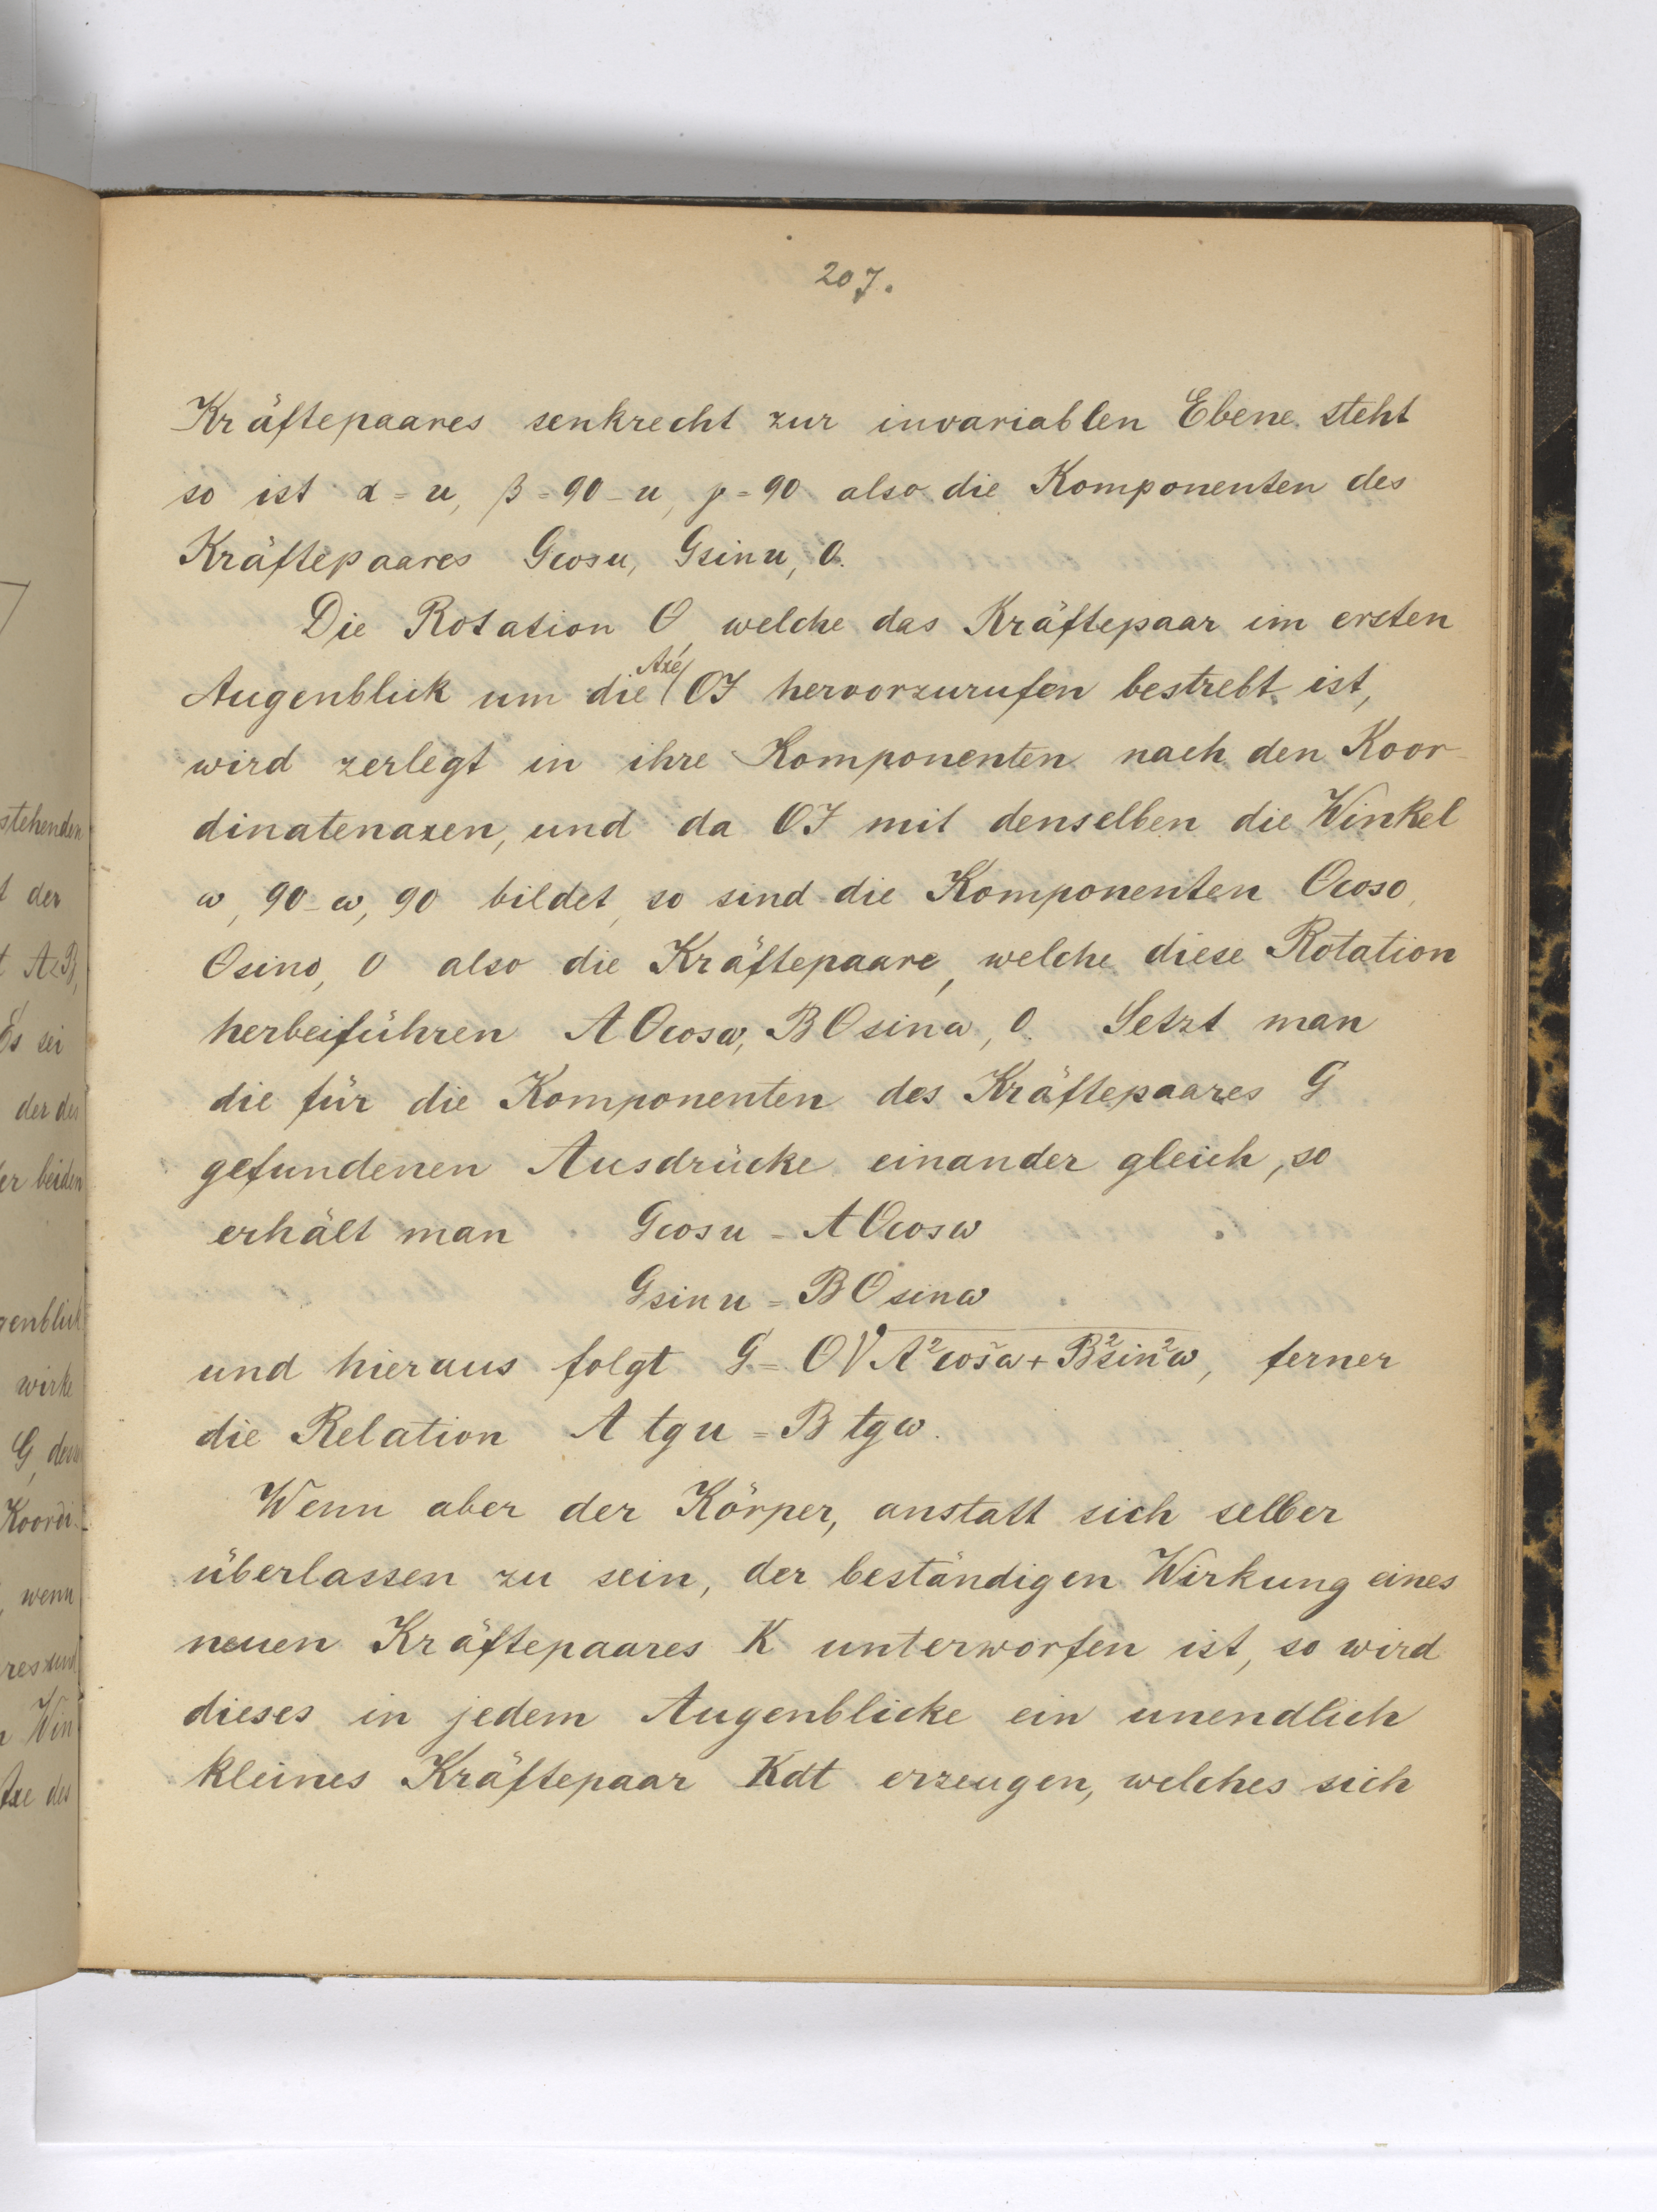 207.
Kräftepaares senkrecht zur invariablen Ebene steht
so ist α = u, β = 90 - u, γ = 90 also die Komponenten des
Kräftepaares Gcosu, Gsinu, 0.
Die Rotation O, welche das Kräftepaar im ersten
Augenblick um die Axe OI hervorzurufen bestrebt ist,
wird zerlegt in ihre Komponenten nach den Koor-
dinatenaxen, und da OI mit denselben die Winkel
ω, 90 - ω, 90 bildet, so sind die Komponenten Ocoso,
Osino, 0 also die Kräftepaare, welche diese Rotation
herbeiführen AOcosω, BOsinω, 0. Setzt man
die für die Komponenten des Kräftepaares G
gefundenen Ausdrücke einander gleich, so
erhält man Gcosu = AOcosω
Gsinu = BOsinω
und hieraus folgt G = O√A²cos²ω + B²sin²ω, ferner
die Relation A tgu = B tgω.
Wenn aber der Körper, anstatt sich selber
überlassen zu sein, der beständigen Wirkung eines
neuen Kräftepaares K unterworfen ist, so wird
dieses in jedem Augenblicke ein unendlich
kleines Kräftepaar Kdt erzeugen, welches sich
stehenden
der
A<B,
Es sei
der der
er beiden
genblick
wirke
G, deren
Koordi-
, wenn
Win
Axe des